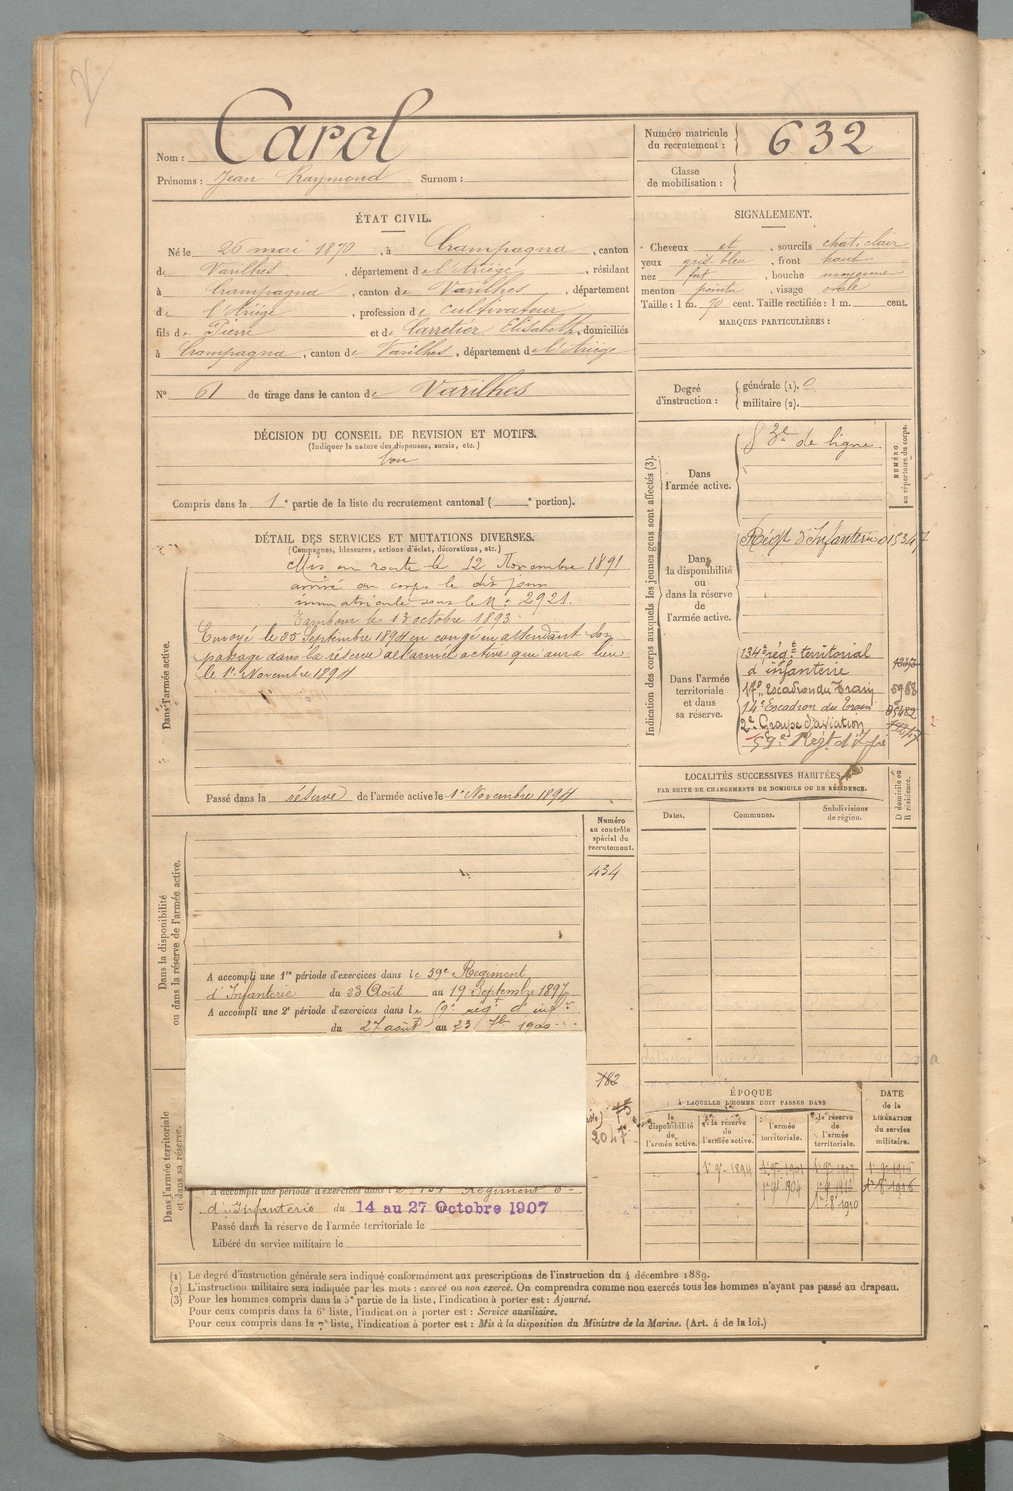 Carol
Nom :
Prénoms : Jean Raymond Surnom :
Numéro matricule du recrutement : 632
Classe de mobilisation :
ÉTAT CIVIL.
Né le 26 mai 1870, à Crampagna, canton
de Varilhes, département de l'Ariége, résidant
à Crampagna, canton de Varilhes, département
de l'Ariége, profession de cultivateur
fils de Pierre et de Carretier Elisabeth, domiciliés
à Crampagna, canton de Varilhes, département de l'Ariége
N° 61 de tirage dans le canton de Varilhes
DÉCISION DU CONSEIL DE REVISION ET MOTIFS.
(Indiquer la nature des dispenses, sursis, etc.)
bon
Compris dans la 1e partie de la liste du recrutement cantonal ( e portion).
SIGNALEMENT.
Cheveux et, sourcils chat. clair
yeux gris bleu, front haut
nez fort, bouche moyenne
menton pointu, visage ovale
Taille : 1 m. 70 cent. Taille rectifiée : 1 m. cent.
MARQUES PARTICULIÈRES :
Degré d'instruction : générale (1).
militaire (2).
DÉTAIL DES SERVICES ET MUTATIONS DIVERSES.
(Campagnes, blessures, actions d'éclat, décorations, etc.)
Dans l'armée active.
Mis en route le 12 Novembre 1891
arrivé au corps le dit jour
immatriculé sous le N° 2921.
Tambour le 13 octobre 1893
Envoyé le 25 Septembre 1894 en congé en attendant son
passage dans la réserve de l'armée active qui aura lieu
le 1er Novembre 1894
Passé dans la réserve de l'armée active le 1er Novembre 1894
Indication des corps auxquels les jeunes gens sont affectés (3).
NUMÉRO au répertoire du corps.
Dans l'armée active.
de ligne
Dans la disponibilité ou dans la réserve de l'armée active.
Régt d'Infanterie 015347
Dans l'armée territoriale et dans sa réserve.
134e régt territorial
d'infanterie
17e Escadron du Train 5968
14e Escadron du Train
2e Groupe d'aviation
59e Régt d'Infie
LOCALITÉS SUCCESSIVES HABITÉES
PAR SUITE DE CHANGEMENTS DE DOMICILE OU DE RÉSIDENCE.
Dates. Communes. Subdivisions de région.
D domicile ou R résidence.
Dans la disponibilité ou dans la réserve de l'armée active.
Numéro au contrôle spécial du recrutement.
434
A accompli une 1re période d'exercices dans le 59e Régiment
d'Infanterie du 23 Août au 19 Septembre 1897
A accompli une 2e période d'exercices dans le 59e régt d'infie
du 27 août au 23 7bre 1900
Dans l'armée territoriale et dans sa réserve.
182
2047
A accompli une période d'exercices dans l Régiment
d'Infanterie du 14 au 27 Octobre 1907
Passé dans la réserve de l'armée territoriale le
Libéré du service militaire le
ÉPOQUE
À LAQUELLE L'HOMME DOIT PASSER DANS
la disponibilité de l'armée active.
la réserve de l'armée active.
l'armée territoriale.
la réserve de l'armée territoriale.
DATE de la LIBÉRATION du service militaire.
(1) Le degré d'instruction générale sera indiqué conformément aux prescriptions de l'instruction du 4 décembre 1889.
(2) L'instruction militaire sera indiquée par les mots : exercé ou non exercé. On comprendra comme non exercés tous les hommes n'ayant pas passé au drapeau.
(3) Pour les hommes compris dans la 5e partie de la liste, l'indication à porter est : Ajourné.
Pour ceux compris dans la 6e liste, l'indication à porter est : Service auxiliaire.
Pour ceux compris dans la 7e liste, l'indication à porter est : Mis à la disposition du Ministre de la Marine. (Art. 4 de la loi.)